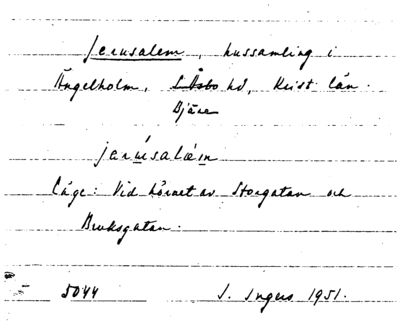 Jerusalem, hussamling i
Ängelholm, S. Åsbo hd, Krist. län.
Bjäre
jerúsalæ̀m
Läge: Vid hörnet av Storgatan och
Bruksgatan.
5044 I. Ingers 1951.